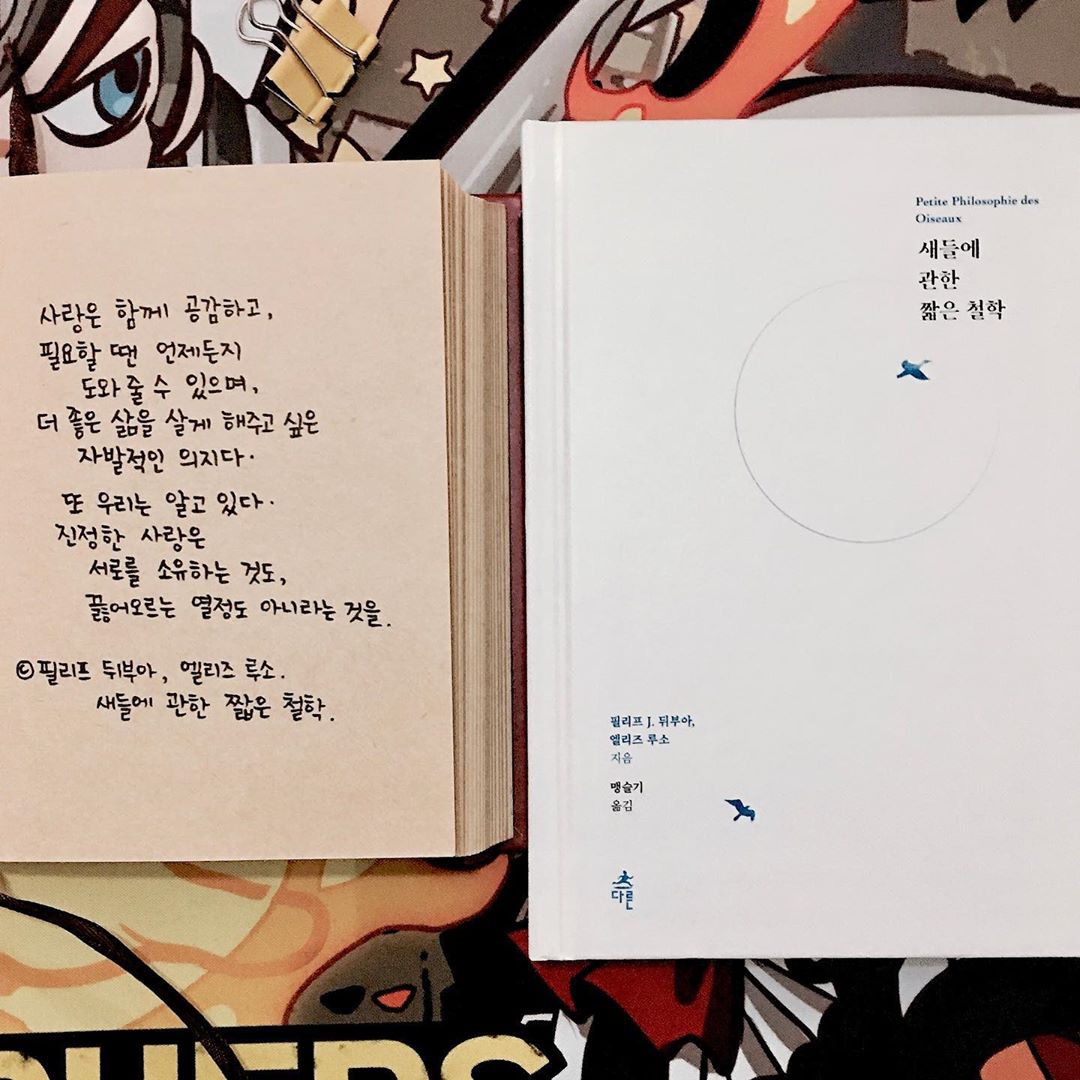 사랑은 함께 공감하고,
필요할 땐 언제든지
도와줄 수 있으며,
더 좋은 삶을 살게 해주고 싶은
자발적인 의지다.
또 우리는 알고 있다.
진정한 사랑은
서로를 소유하는 것도,
끓어오르는 열정도 아니라는 것을.
©필리프 뒤부아, 엘리즈 루소.
새들에 관한 짧은 철학.
Petite Philosophie des
Oiseaux
새들에
관한
짧은 철학
필리프 J. 뒤부아,
엘리즈 루소
지음
맹슬기
옮김
다른